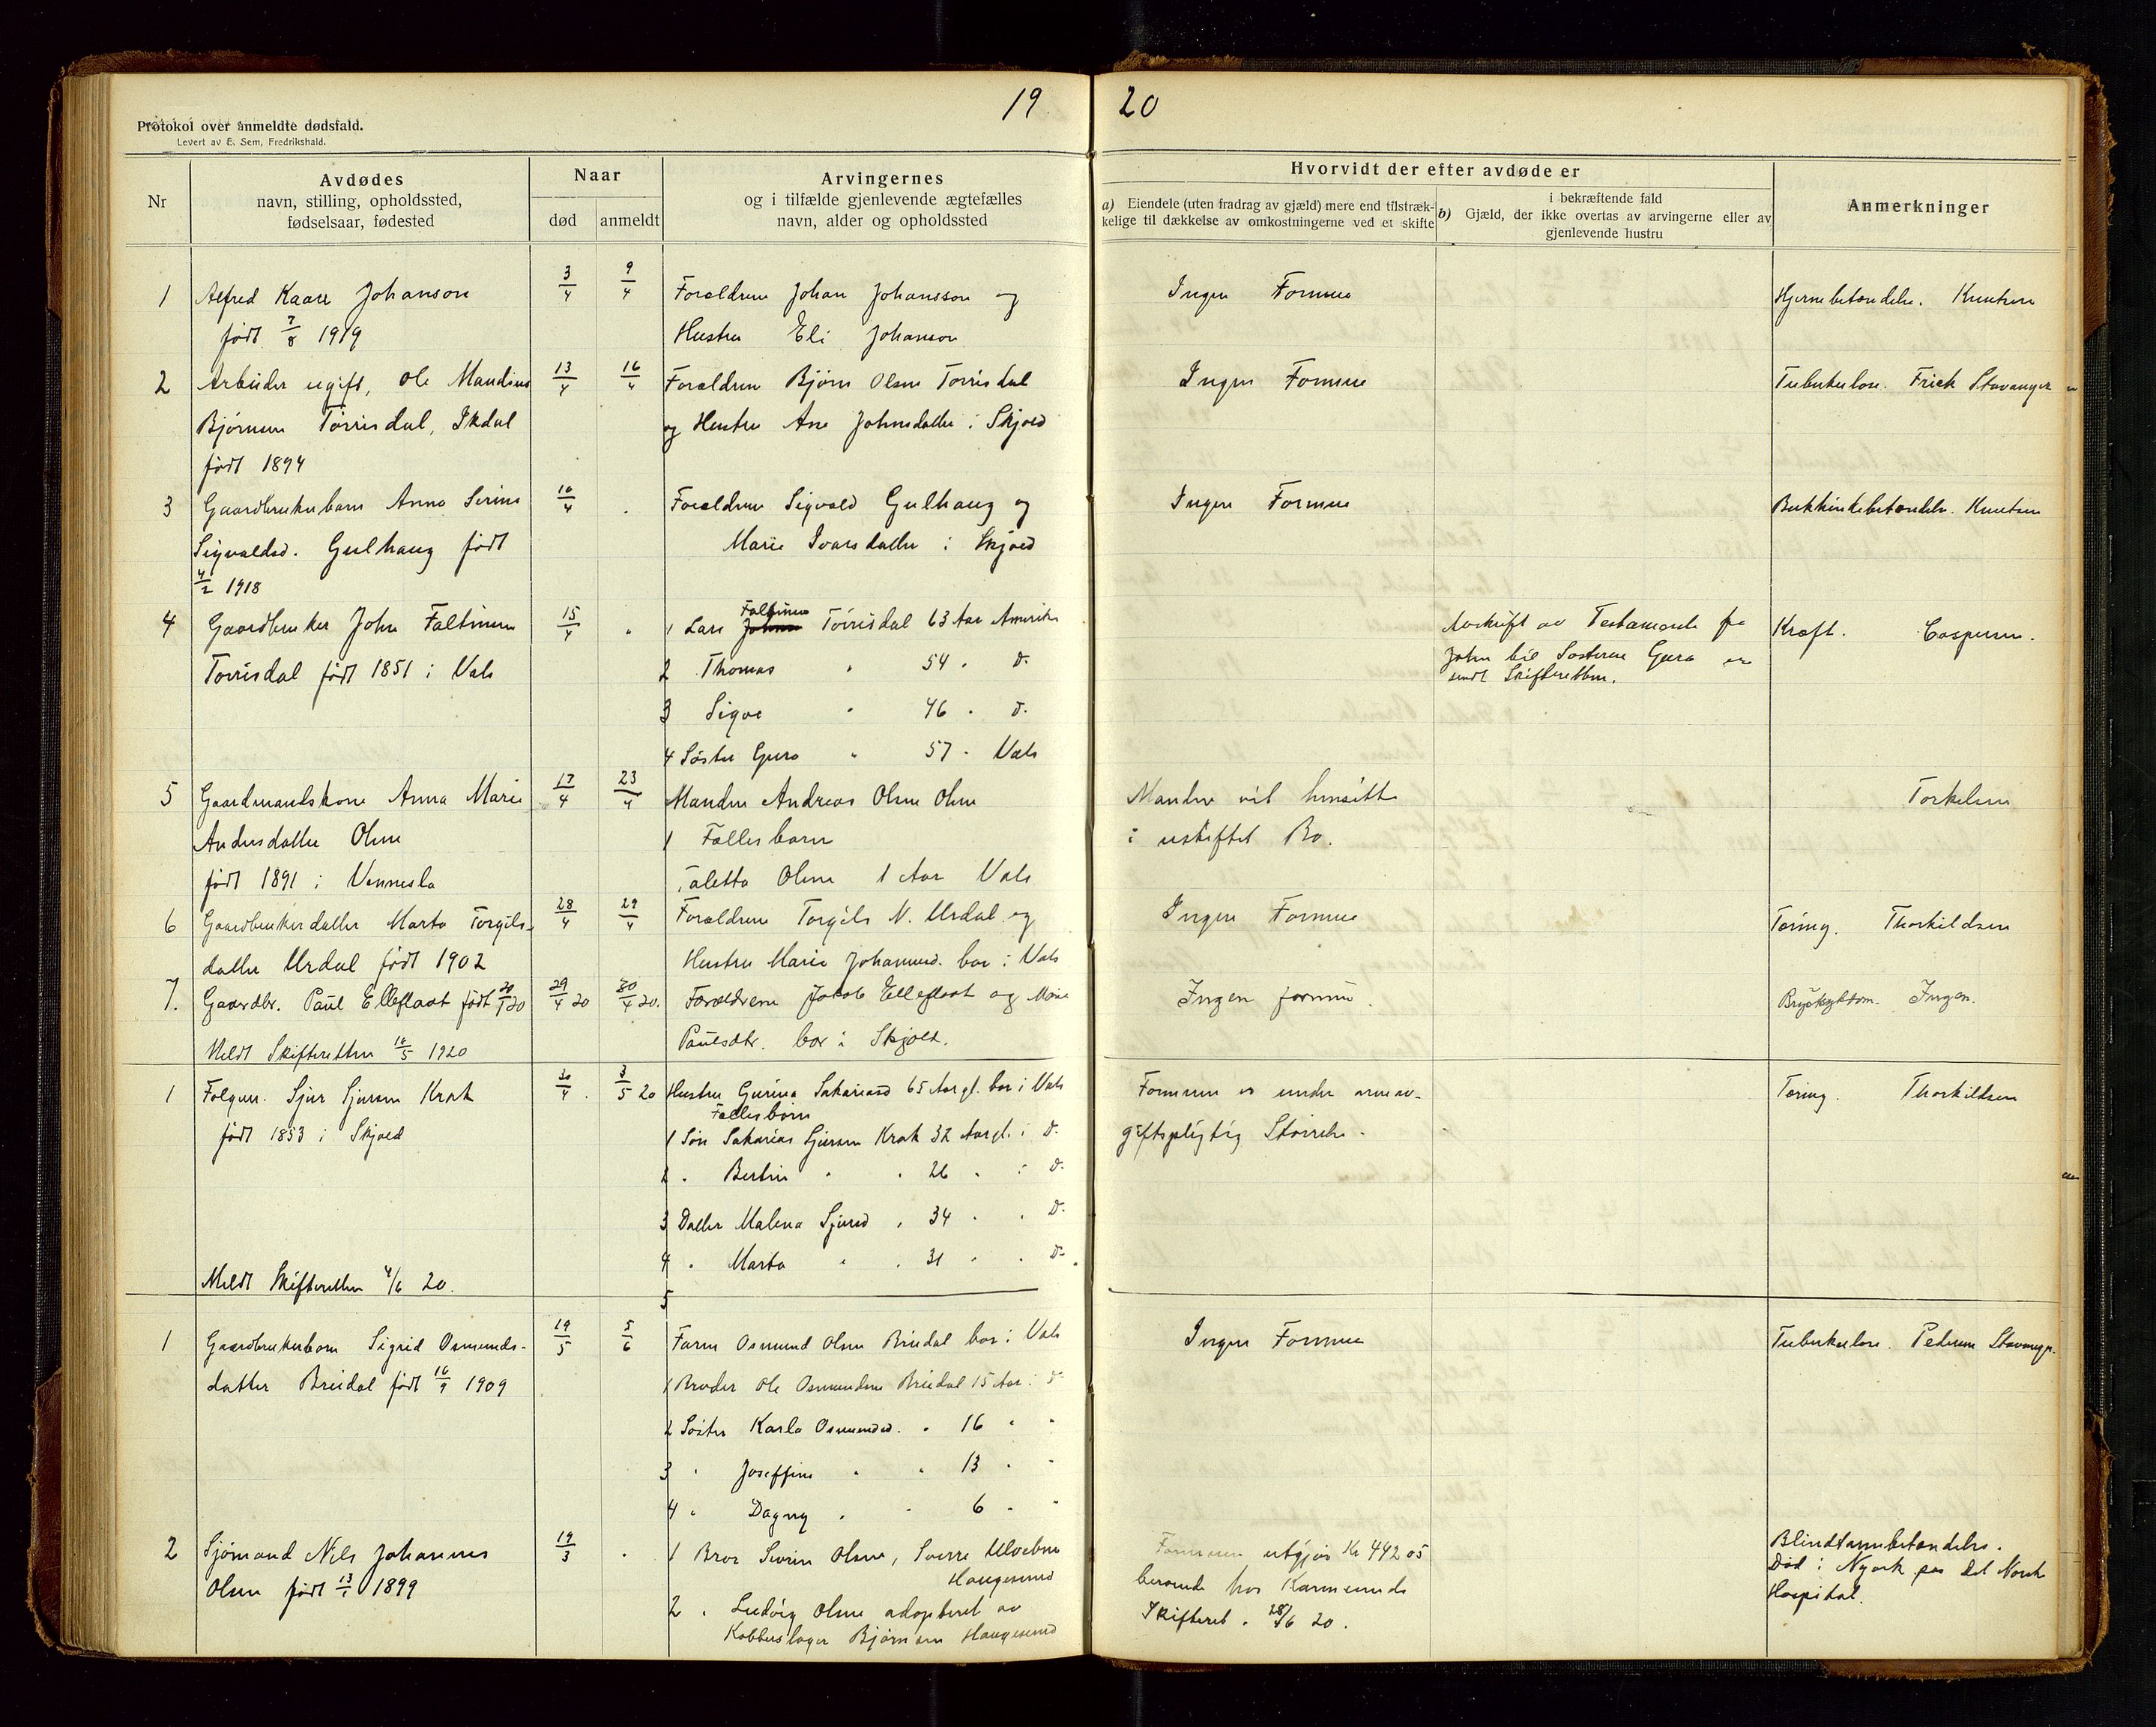 19
20
Protokol over anmeldte dødsfald.
Levert av E. Sem, Fredrikshald.
Nr
Avdødes
navn, stilling, opholdssted,
fødselsaar, fødested
Naar
død
anmeldt
Arvingernes
og i tilfælde gjenlevende ægtefælles
navn, alder og opholdssted
Hvorvidt der efter avdøde er
a) Eiendele (uten fradrag av gjæld) mere end tilstræk-
kelige til dækkelse av omkostningerne ved et skifte
i bekræftende fald
b) Gjæld, der ikke overtas av arvingerne eller av
gjenlevende hustru
Anmerkninger
1 Alfred Kaare Johanson 3/4 9/4 Forældrene Johan Johansson og Ingen Formue Hjernebetændelse. Knutsen
født 7/8 1919 Hustru Eli Johanson
2 Arbeider ugift, Ole Maudius 13/4 16/4 Forældrene Bjørn Olsen Tørrisdal Ingen Formue Tuberkulose. Frick Stavanger
Bjørnsen Tørrisdal, Ikdal og Hustru Ane Johnsdatter i Skjold
født 1894
3 Gaardbrukerbarn Anna Serine 10/4 Forældrene Sigvald Gulhaug og Ingen Formue Knutsen
Sigvaldsd. Gulhaug født Marie Ivarsdatter i Skjold
4/2 1918
4 Gaardbruker John Faltinsen 15/4 " 1 Lars Faltinsen Tørrisdal 63 Aar Amerika Avskrift av Testamente fra Kræft. Caspersen.
Tørrisdal født 1851 i Vats 2 Thomas " 54 " d. John til Søsteren Guro er
sendt Skifteretten.
3 Sigve " 46 " d.
4 Søster Guro " 57 " Vats
5 Gaardmandskone Anna Marie 17/4 23/4 Manden Andreas Olsen Olsen Manden vil hensitte Torkelsen
Andersdatter Olsen 1 Fællesbarn i uskiftet Bo.
født 1891 i Vennesla Taletta Olsen 1 Aar Vats
6 Gaardbrukerdatter Marta Torgils- 28/4 29/4 Forældrene Torgils N. Urdal og Ingen Formue Tæring. Thorkildsen
datter Urdal født 1902 Hustru Marie Johannesd. bor i Vats
7. Gaardbr. Paul Elleflaat født 20/1 20 29/4 20 30/4 20. Forældrene Jakob Elleflaat og Marie Ingen formue. Ingen.
Meldt Skifteretten 10/5 1920 Paulsdtr. bor i Skjold.
1 Følgem. Sjur Sjursen Krak 30/4 3/5 20 Hustru Gurina Sakariasd 65 Aar gl. bor i Vats Formuen er under arveav- Tæring. Thorkildsen
født 1853 i Skjold Fællesbørn
1 Søn Sakarias Sjursen Krak 32 Aar gl. i d. giftspligtig Størrelse.
2 " Bertin " " 26 " i d.
3 Datter Malena Sjursd " 34 " " d.
Meldt Skifteretten 4/6 20. 4 " Marta " " 31 " " d.
5
1 Gaardbrukerbarn Sigrid Osmunds- 19/5 5/6 Faren Osmund Olsen Breidal bor i Vats Ingen Formue Tuberkulose. Pedersen Stavanger.
datter Breidal født 16/9 1909 1 Broder Ole Osmundsen Breidal 15 Aar i d
2 Søster Karla Osmundsd. " 16 " "
3 " Joseffine " " 13 " "
4 " Dagny " " 6 " "
2 Sjømand Nils Johannes 19/3 " 1 Bror Severin Olsen, Sverre Formuen utgjør Kr 442 05 Blindtarmbetændelse.
Olsen født 13/1 1899 Haugesund beroende hos Karmsunds Død i Nyork paa Det Norske
2 " Ludvig Olsen adopteret av Skifteret. 28/6 20. Hospital.
Kobberslager Bjørnsen Haugesund